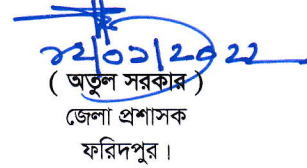 ১২/০১/২০২২
( অতুল সরকার )
জেলা প্রশাসক
ফরিদপুর ।